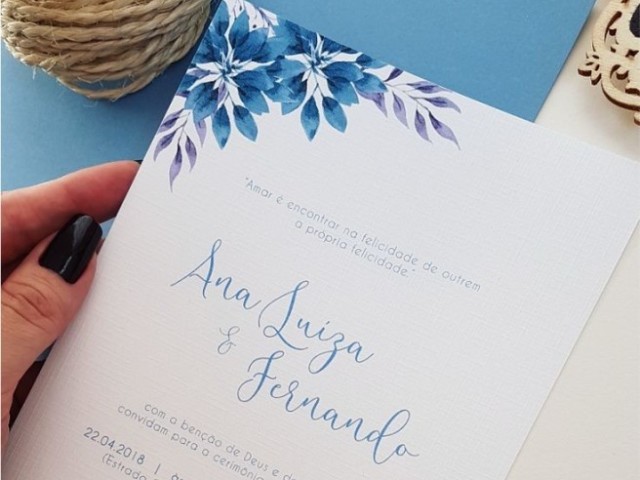 "Amar é encontrar na felicidade de outrem
a própria felicidade."
Ana Luiza
&
Fernando
com a benção de Deus e d
convidam para a cerimôni
22.04.2018 |
(Estrada